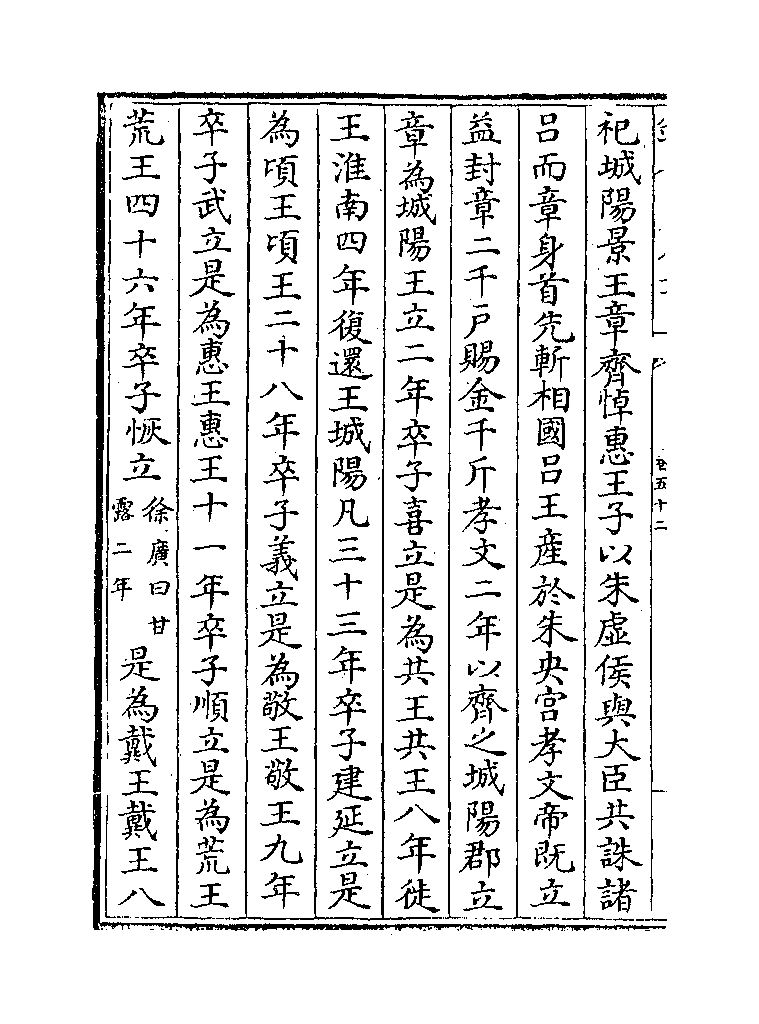 卷五十二
祀城陽景王章齊悼惠王子以朱虚侯與大臣共誅諸
吕而章身首先斬相國吕王産於朱央宫孝文帝既立
益封章二千户賜金千斤孝文二年以齊之城陽郡立
章為城陽王立二年卒子喜立是為共王共王八年徙
王淮南四年復還王城陽凡三十三年卒子建延立是
為頃王頃王二十八年卒子義立是為敬王敬王九年
卒子武立是為惠王惠王十一年卒子順立是為荒王
荒王四十六年卒子恢立徐廣曰甘露二年是為戴王戴王八